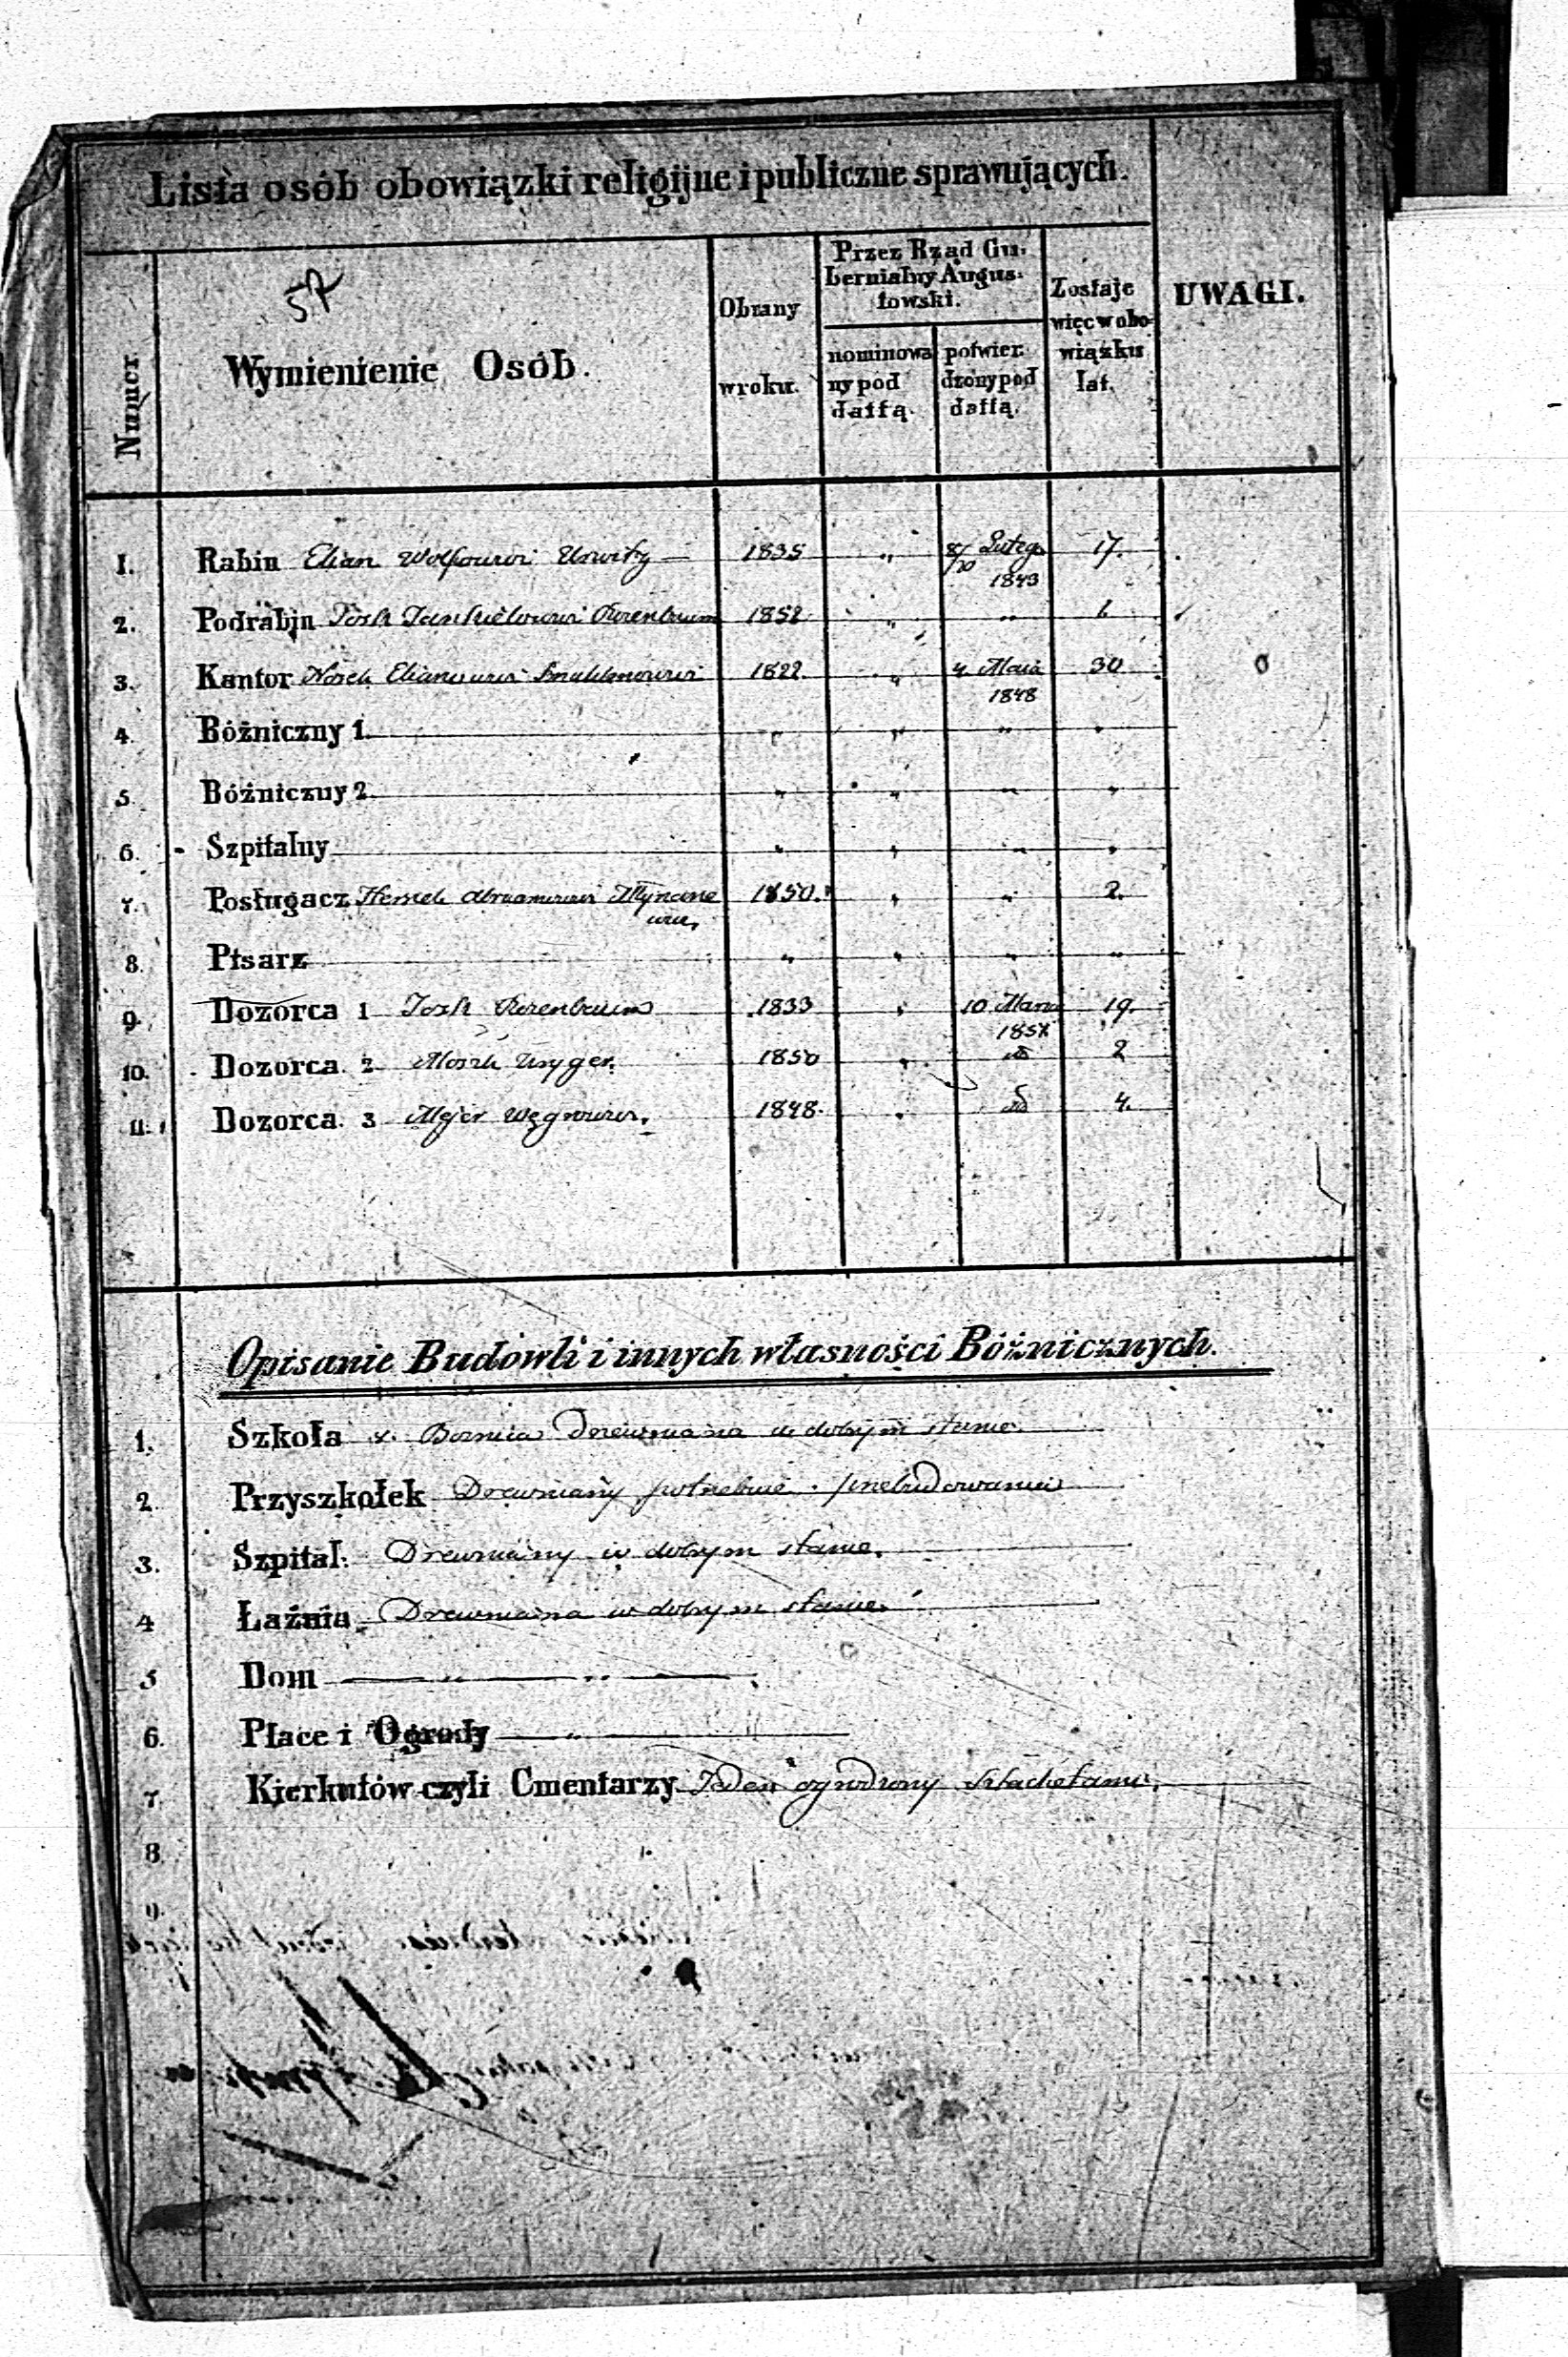 Lista osób obowiązki religijne i publiczne sprawujących.
57
Numer
Wymienienie Osób.
Obrany w roku.
Przez Rząd Gubernialny Augustowski.
nominowany pod dattą.
potwierdzony pod dattą.
Zostaje więc w obowiązku lat.
UWAGI.
1. Rabin Elian Wolfowicz 1835 " 8/20 Lutego 1843 17.
2. Podrabin Josk Jankielowicz Rozenbaum 1852 " "
3. Kantor Elianowicz 1822. " 4 Maia 1848 30
4. Bóżniczny 1. " " " "
5. Bóżniczny 2 " " " "
6. Szpitalny " " " "
7. Posługacz 1850. " " 2.
8. Pisarz " " " "
9. Dozorca 1 Josk Rozenbaum 1833 " 10 19.
10. Dozorca 2 Mosek 1850 " 2
11. Dozorca 3 Mejer 1848. " 4.
Opisanie Budowli i innych własności Bóżnicznych.
1. Szkoła Drewniana w dobrym stanie.
2. Przyszkołek Drewniany potrzebuie przebudowania
3. Szpital: Drewniany w dobrym stanie.
4 Łaźnia Drewniana w dobrym stanie.
5 Dom " "
6. Place i Ogrody "
7. Kierkutów czyli Cmentarzy Jeden ogrodzony sztachetami.
8.
9.